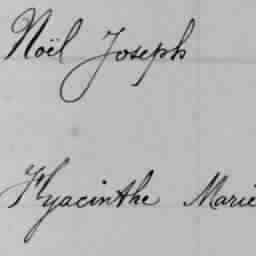 Noël Joseph
Hyacinthe Marie